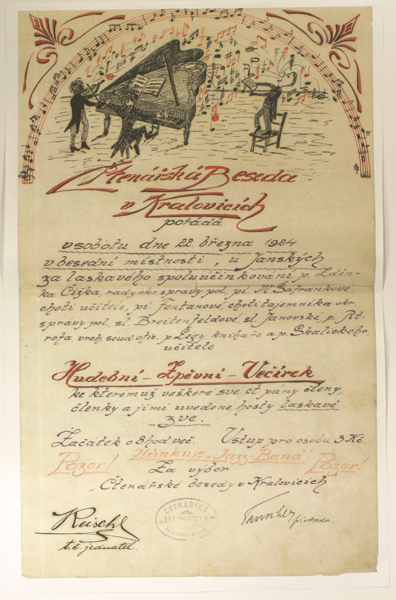 Čtenářská Beseda
v Kralovicích
pořádá
v sobotu dne 22. března 1924
v besední místnosti „u Janských
za laskavého spoluúčinkování p. Zdeň-
ka Čížka, rady okr. správy pol. pí. M. Šafránkové,
choti učitele, pí Fontánové choti tajemníka okr.
správy pol. sl. Breitenfeldové, sl. Janovské p.
vrch. soud. ofic. p. Légy knihaře a p. Skalického,
učitele
Hudební-Zpěvní-Večírek
ke kterémuž veškeré své čt. pány členy,
členky a jimi uvedené hosty laskavě
zve.
Začátek o 8 hod. več. Vstup pro osobu 3 Kč.
Pozor! Účinkuje „Jazz-Band“! Pozor!
Za výbor
„Čtenářské besedy v Kralovicích
t.č. jednatel.
ČTENÁŘSKÁ
BESEDA